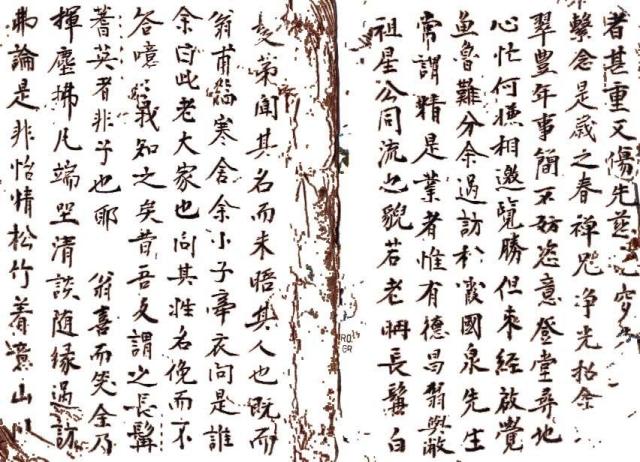 者甚重又傷先茲之穸
繫念是歲之春禪咒淨光招余
翠豐年事簡不妨恣意登堂尋地
心忙何慊相邀覽勝但未經啟覺
魚魯難分余過訪於霞國泉先生
常謂精是業者惟有德昌翁與敝
祖星公同流也貌若老聃長髯白
髮弟聞其名而未晤其人也既而
翁甫臨寒舍余小子牽衣問是誰
余曰此老大家也向其姓名俛而不
答噫我知之矣昔吾父謂之長髯
耆英者非子也耶 翁喜而笑余乃
揮塵拂几端坐清談随緣過訪
弗論是非怡情松竹着意山川